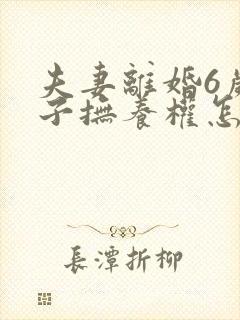 夫妻離婚6歲
子撫養權怎
長潭折柳